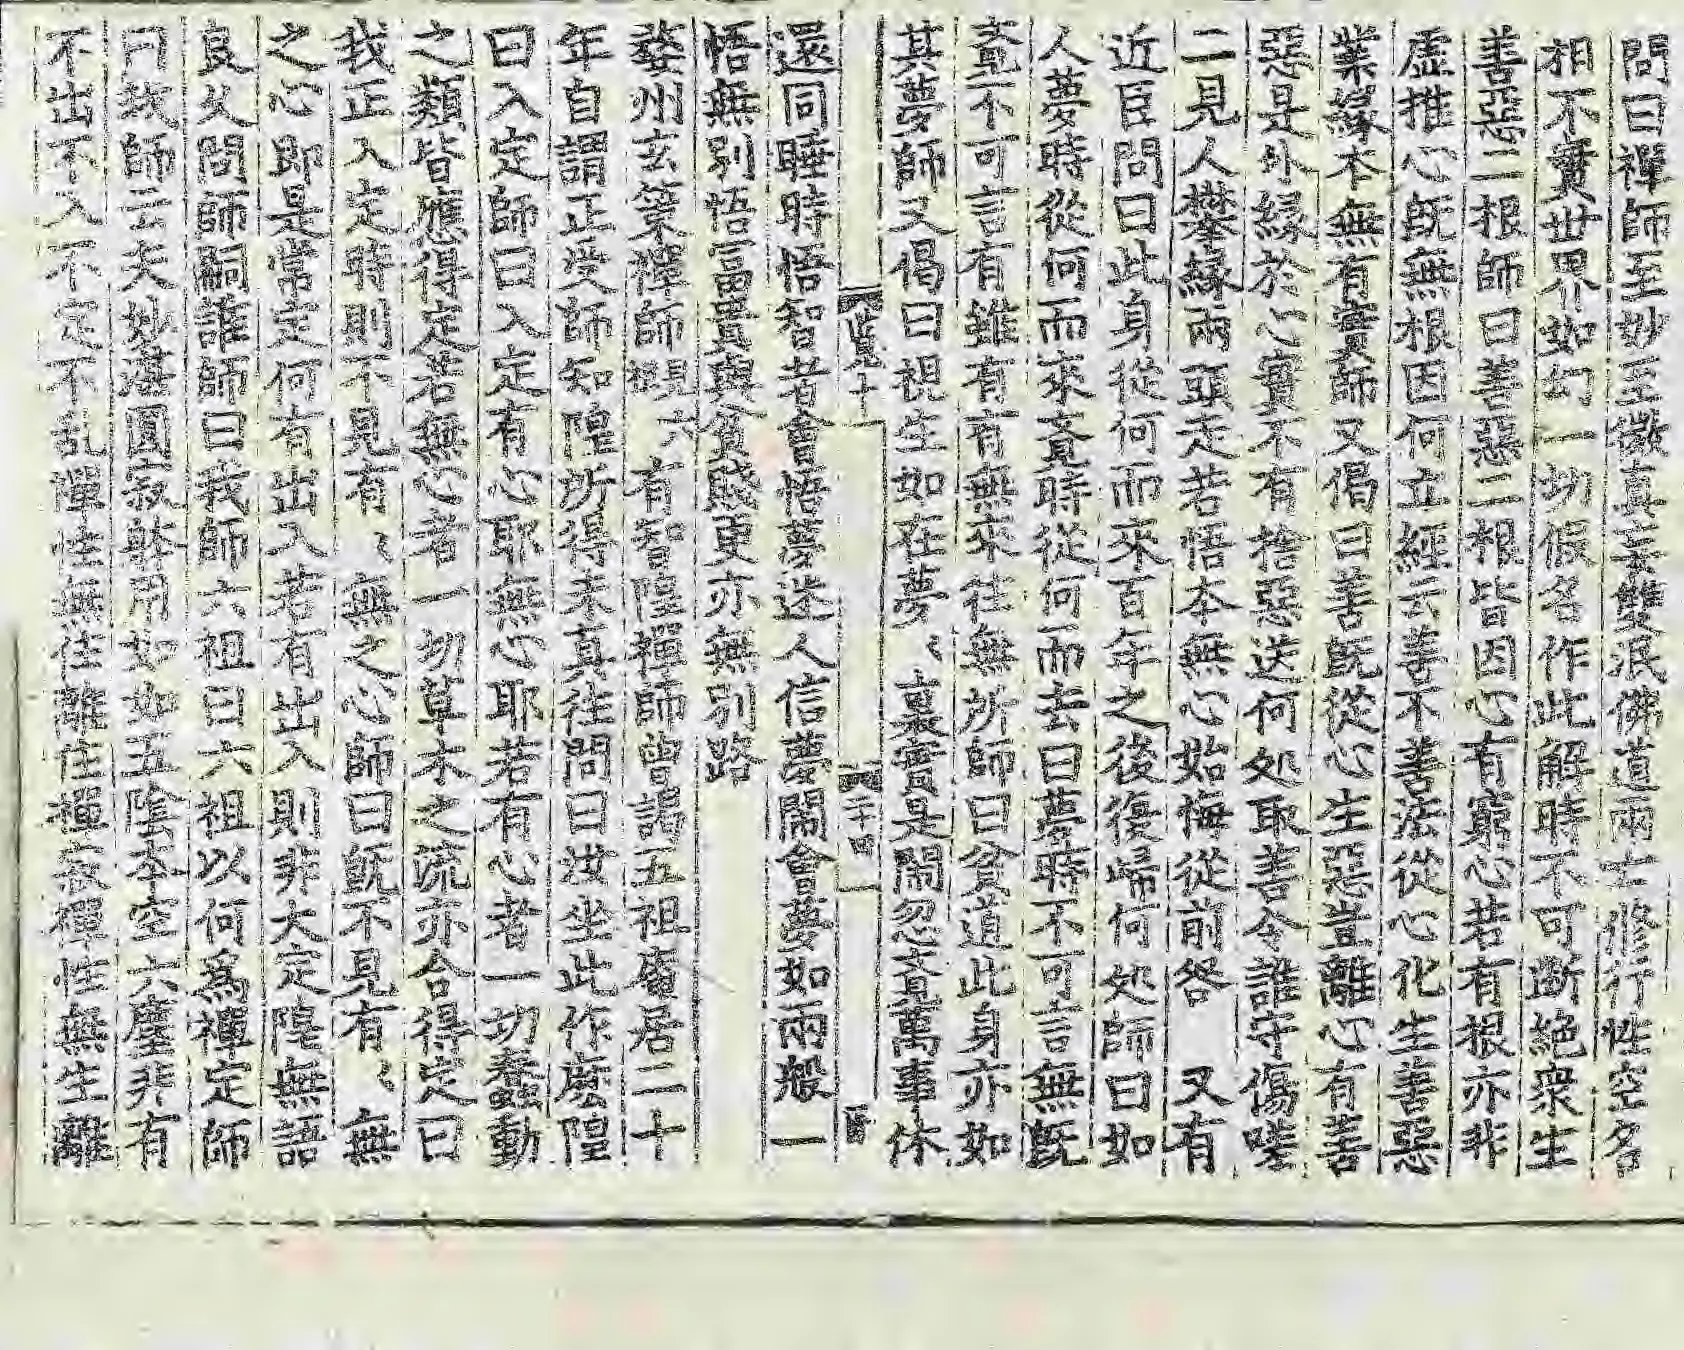 問曰禪師至妙至微真妄雙泯佛道兩亡修行性空名
相不實世界如幻一切假名作此解時不可断絶衆生
善惡二根師曰善惡二根皆因心有窮心若有根亦非
虛推心既無根因何立經云善不善法從心化生善惡
業緣本無有實師又偈曰善既從心生惡豈離心有善
惡是外緣於心實不有捨惡送何処取善令誰守傷嗟
二見人攀緣兩頭走若悟本無心始悔從前咎　又有
近臣問曰此身從何而來百年之後復歸何処師曰如
人夢時從何而來覔時從何而去曰夢時不可言無既
覔不可言有雖有有無來往無所師曰貧道此身亦如
其夢師又偈曰視生如在夢〻裏實是閙忽覔萬事休
還同睡時悟智者會悟夢迷人信夢閙會夢如兩般一
悟無別悟富貴與貧賤更亦無別路
婺州玄策禪師 六 有智隍禪師曾謁五祖菴居二十
年自謂正受師知隍所得未真往問曰汝坐此作麽隍
曰入定師曰入定有心耶無心耶若有心者一切蠢動
之類皆應得定若無心者一切草木之流亦合得定曰
我正入定時則不見有〻無之心師曰既不見有〻無
之心即是常定何有出入若有出入則非大定隍無語
良久問師嗣誰師曰我師六祖曰六祖以何為禪定師
曰我師云夫妙湛圓寂躰用如如五陰本空六塵非有
不出不入不定不乱禪性無住離住禪寂禪性無生離